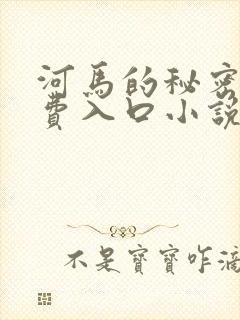 河馬的秘密
費入口小說
不是寶寶咋滴